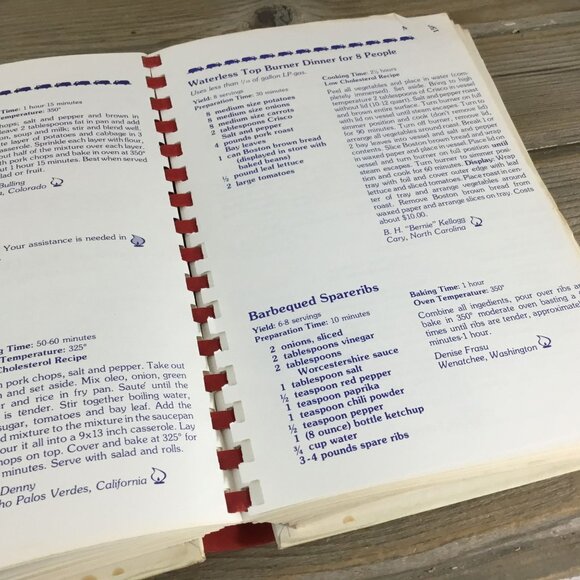 Time: 1 hour 15 minutes
Temperature: 350°
chops, salt and pepper and brown in
leave 2 tablespoons fat in pan and add
soup and milk; stir and blend well.
potatoes and cabbage in 3
Sprinkle each layer with flour,
out half of the mixture over each layer.
h pork chops and bake in oven at 350°
out 1 hour 15 minutes. Best when served
alad or fruit.
Bulling
, Colorado
Your assistance is needed in
g Time: 50-60 minutes
Temperature: 325°
Cholesterol Recipe
n pork chops, salt and pepper. Take out
n and set aside. Mix oleo, onion, green
r and rice in fry pan. Sauté until the
is tender. Stir together boiling water,
sugar, tomatoes and bay leaf. Add the
d mixture to the mixture in the saucepan
our it all into a 9x13 inch casserole. Lay
hops on top. Cover and bake at 325° for
minutes. Serve with salad and rolls.
Denny
ho Palos Verdes, California
Waterless Top Burner Dinner for 8 People
Uses less than 1/10 of gallon LP-gas.
Yield: 8 servings
Preparation Time: 30 minutes
8 medium size potatoes
8 medium size onions
8 medium size carrots
2 tablespoons Crisco
Salt and pepper
4 pounds pork roast
Bay leaves
1 can Boston brown bread
(displayed in store with
baked beans)
½ pound leaf lettuce
2 large tomatoes
Cooking Time: 2½ hours
Low Cholesterol Recipe
Peel all vegetables and place in water (com-
pletely immersed). Set aside. Bring to high
temperature 2 tablespoons of Crisco in vessel
without lid (10-12 quart). Salt and pepper roast
and brown entire surface. Turn burner off. Put
lid on vessel until steam escapes. Turn burner on
simmer position and cook (don't remove lid)
for 90 minutes. Turn off burner, remove lid,
arrange all vegetables around roast. Break up 2
bay leaves into vessel and salt and pepper
contents. Slice Boston brown bread and wrap
in waxed paper and place in vessel. Place lid on
vessel and turn burner on full position until
steam escapes. Turn burner to simmer posi-
tion and cook for 60 minutes. Display: Wrap
tray with foil and cover outer edge with leaf
lettuce and sliced tomatoes. Place roast in cen-
ter of tray and arrange vegetables around
roast. Remove Boston brown bread from
waxed paper and arrange slices on tray. Costs
about $10.00.
B. H. "Bernie" Kellogg
Cary, North Carolina
Barbequed Spareribs
Yield: 6-8 servings
Preparation Time: 10 minutes
2 onions, sliced
2 tablespoons vinegar
2 tablespoons
Worcestershire sauce
1 tablespoon salt
½ teaspoon red pepper
1 teaspoon paprika
1 teaspoon chili powder
½ teaspoon pepper
1 (8 ounce) bottle ketchup
¾ cup water
3-4 pounds spare ribs
Baking Time: 1 hour
Oven Temperature: 350°
Combine all ingedients, pour over ribs a
bake in 350° moderate oven basting a
times until ribs are tender, approximate
minutes-1 hour.
Denise Frasu
Wenatchee, Washington